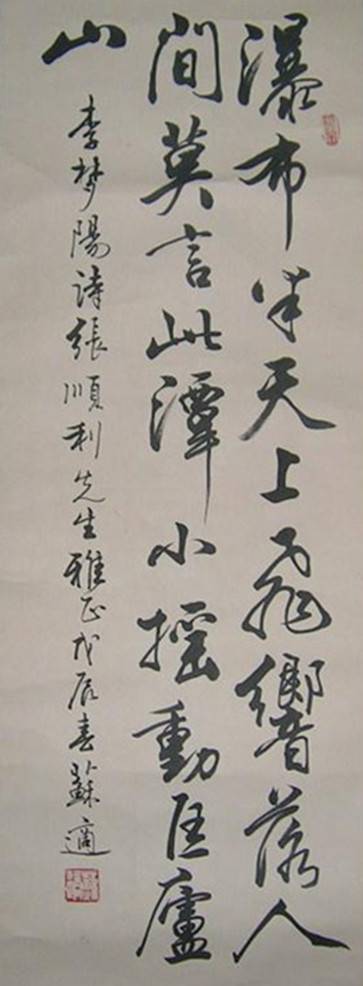 瀑布半天上飛響落人
間莫言此潭小摇動匡廬
山
李梦陽诗張順利先生雅正戊辰春蘇適